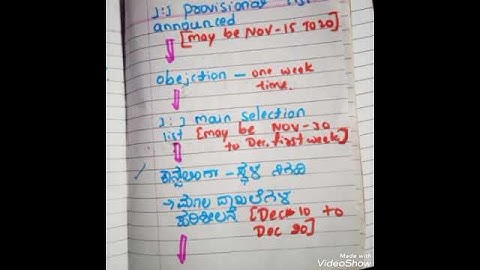 1:1 provisional list
announced
[may be NOV-15 TO 20]
obejction - one week
time.
1:1 main selection
list [may be NOV-30
to Dec. first week]
ಕೌನ್ಸೆಲಿಂಗ್ - ಸ್ಥಳ ನಿಗದಿ
→ ಮೂಲ ದಾಖಲೆಗಳ
ಪರಿಶೀಲನೆ [Dec 10 to
Dec 20]
Made with
VideoShow